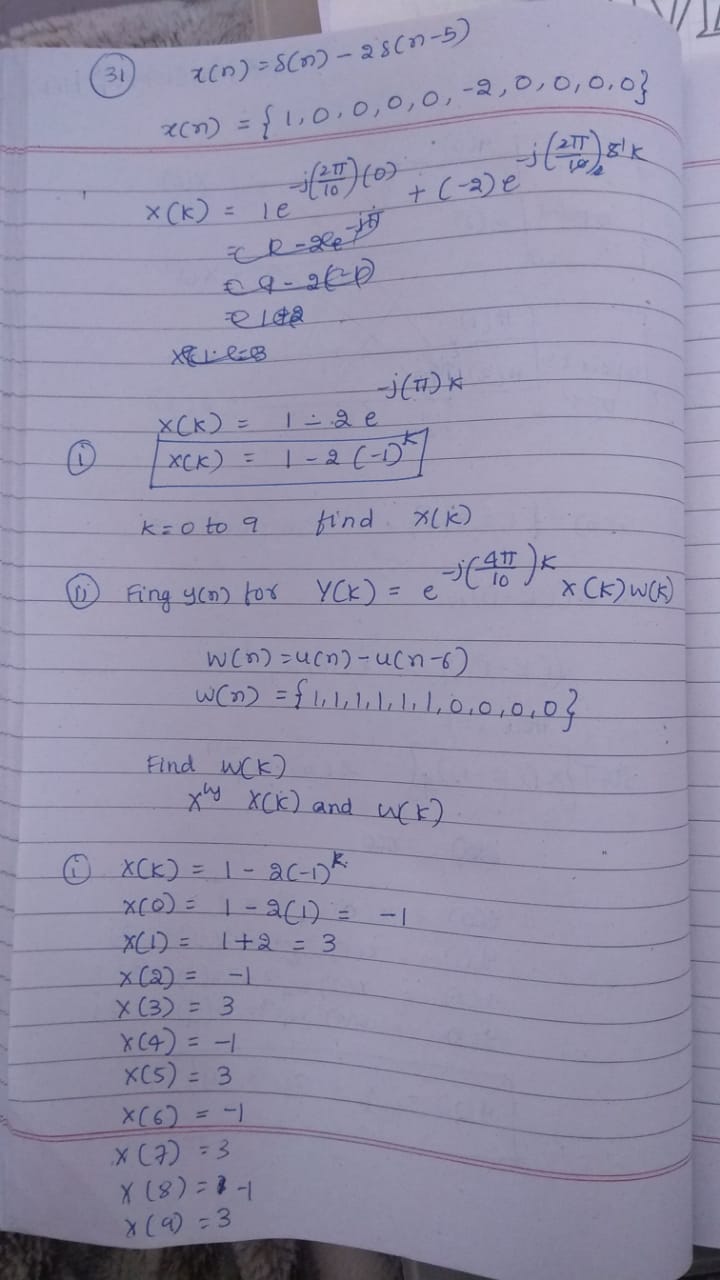 31 x(n) = δ(n) - 2δ(n-5)
x(n) = {1,0,0,0,0,-2,0,0,0,0}
X(K) = 1e^{-j(2π/10)(0)} + (-2)e^{-j(2π/10)5K}
X(K) = 1 - 2e^{-j(π)K}
(i) X(K) = 1 - 2(-1)^K
K=0 to 9 find X(K)
(ii) Fing y(n) for Y(K) = e^{-j(4π/10)K} X(K)W(K)
W(n) = u(n) - u(n-6)
W(n) = {1,1,1,1,1,1,0,0,0,0}
Find W(K)
x^{ly} X(K) and W(K)
(i) X(K) = 1 - 2(-1)^K
X(0) = 1 - 2(1) = -1
X(1) = 1+2 = 3
X(2) = -1
X(3) = 3
X(4) = -1
X(5) = 3
X(6) = -1
X(7) = 3
X(8) = -1
X(9) = 3